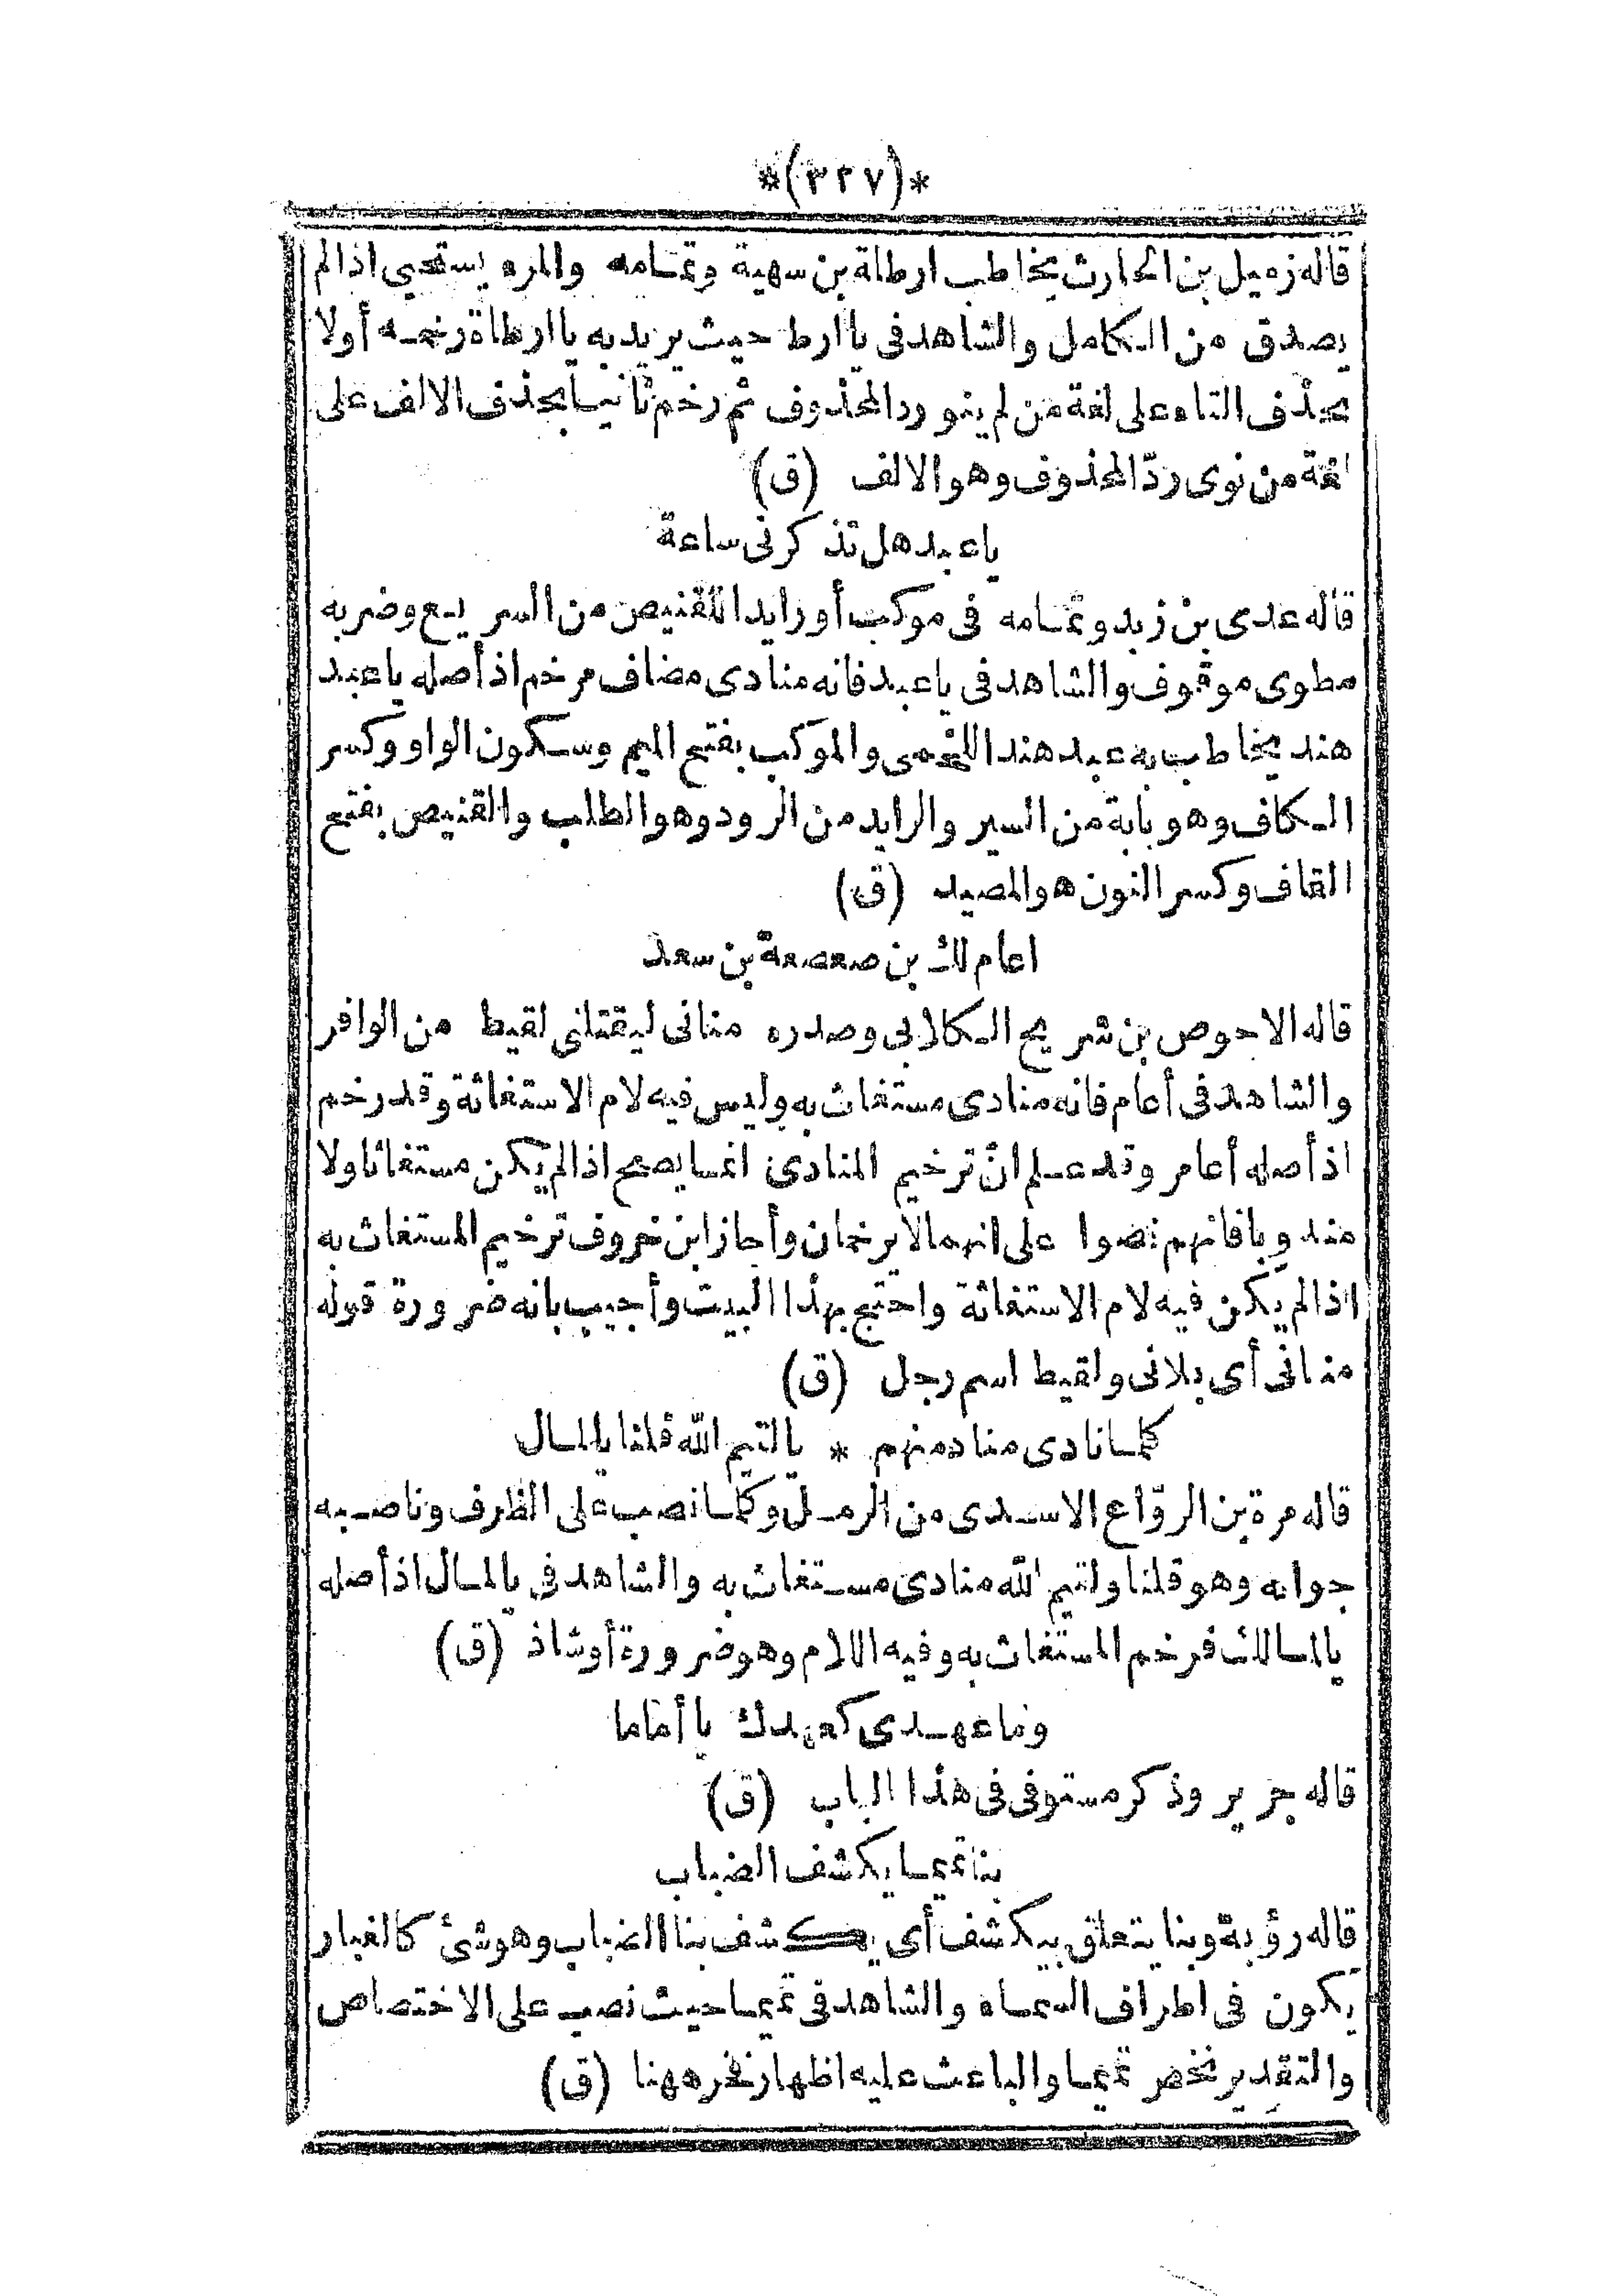 *(٣٢٧)*
قاله زميل بن الحارث يخاطب ارطاة بن سهية وتمامه والمرء يستحيى اذا لم
يصدق من الكامل والشاهد فى يا ارط حيث يريد به يا ارطاة رخمه أولا
بحذف التاء على لغة من لم ينو رد المحذوف ثم رخم ثانيا بحذف الالف على
لغة من نوى ردّ المحذوف وهو الالف (ق)
يا عبد هل تذكرنى ساعة
قاله عدى بن زيد وتمامه فى موكب أو رايد اللقنيص من السريع وضربه
مطوى موقوف والشاهد فى يا عبد فانه منادى مضاف مرخم اذ أصله يا عبد
هند يخاطب به عبد هند اللخمى والموكب بفتح الميم وسكون الواو وكسر
الكاف وهو بابة من السير والرايد من الرود وهو الطلب والقنيص بفتح
القاف وكسر النون هو المصيد (ق)
اعام لك بن صعصعة بن سعد
قاله الاحوص بن شريح الكلابى وصدره منانى ليقتلنى لقيط من الوافر
والشاهد فى أعام فانه منادى مستغاث به وليس فيه لام الاستغاثة وقد رخم
اذ أصله أعامر وقد علم انّ ترخيم المنادى انما يصح اذا لم يكن مستغاثا ولا
مندوبا فانهم نصوا على انهما لا يرخمان وأجاز ابن خروف ترخيم المستغاث به
اذا لم يكن فيه لام الاستغاثة واحتج بهذا البيت وأجيب بانه ضرورة قوله
منانى أى بلانى ولقيط اسم رجل (ق)
كلما نادى مناد منهم * يا لتيم الله قلنا يا لمال
قاله مرة بن الروّاع الاسدى من الرمل وكلما نصب على الظرف وناصبه
جوابه وهو قلنا ولتيم الله منادى مستغاث به والشاهد فى يا لمال اذ أصله
يا لمالك فرخم المستغاث به وفيه اللام وهو ضرورة أو شاذ (ق)
وما عهدى كعهدك يا أماما
قاله جرير وذكر مستوفى فى هذا الباب (ق)
بنا تميما يكشف الضباب
قاله رؤبة وبنا يتعلق بيكشف أى يكشف بنا الضباب وهو شئ كالغبار
يكون فى اطراف السماء والشاهد فى تميما حيث نصب على الاختصاص
والتقدير نخص تميما والباعث عليه اظهار فخر ههنا (ق)